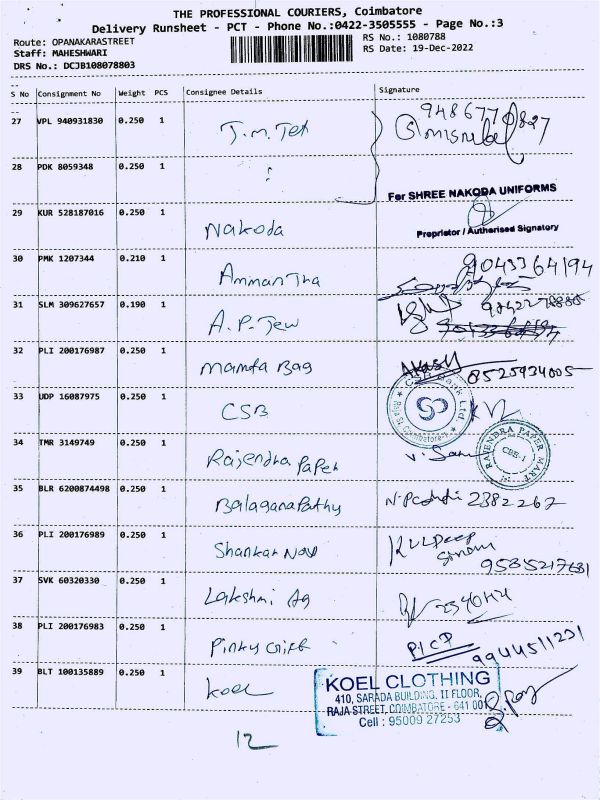 THE PROFESSIONAL COURIERS, Coimbatore
Delivery Runsheet - PCT - Phone No.:0422-3505555 - Page No.:3
Route: OPANAKARASTREET
RS No.: 1080788
Staff: MAHESHWARI
RS Date: 19-Dec-2022
DRS No.: DCJB108078803
S No Consignment No Weight PCS Consignee Details Signature
27 VPL 940931830 0.250 1 T.M. Tex 9486770827
28 PDK 8059348 0.250 1
For SHREE NAKODA UNIFORMS
29 KUR 528187016 0.250 1 Nakoda
Proprietor / Authorised Signatory
30 PMK 1207344 0.210 1 Amman Tha 9043364194
31 SLM 309627657 0.190 1 A.P. Jew
32 PLI 200176987 0.250 1 Mamta Bag Akash 8525934005
33 UDP 16087975 0.250 1 CSB
CSB Bank Ltd
Raja St. Coimbatore-1
34 TMR 3149749 0.250 1 Rajendra Paper
RAJENDRA PAPER MART
CBE-1
35 BLR 6200874498 0.250 1 Balaganapathy 2382262
36 PLI 200176989 0.250 1 Shankar Nov Kuldeep
9585217681
37 SVK 60320330 0.250 1 Lakshmi Ag
38 PLI 200176983 0.250 1 Pinky Gift 9944511231
39 BLT 100135889 0.250 1 Koel
KOEL CLOTHING
410, SARADA BUILDING, II FLOOR,
RAJA STREET, COIMBATORE - 641 001
Cell : 95009 27253
12